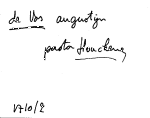 de Vos augustijn
pastor Houchene
1710/2